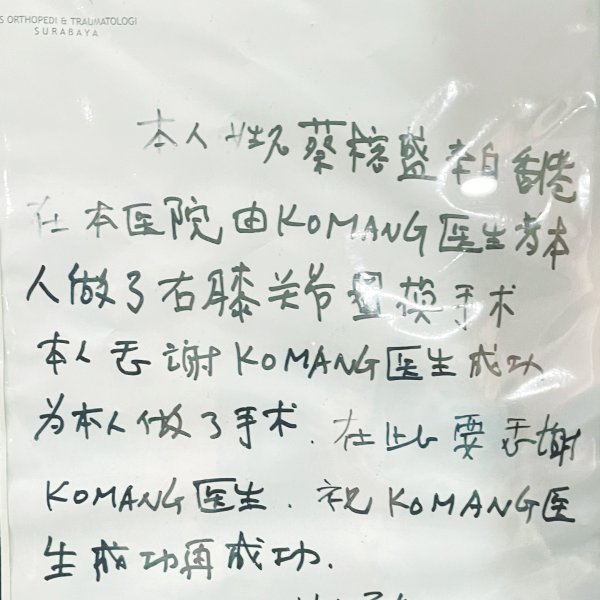 S ORTHOPEDI & TRAUMATOLOGI
SURABAYA
本人姓名蔡榕盛来自香港
在本医院由KOMANG医生为本
人做了右膝关节置换手术
本人感谢KOMANG医生成功
为本人做了手术.在此要感谢
KOMANG医生.祝KOMANG医
生成功再成功.